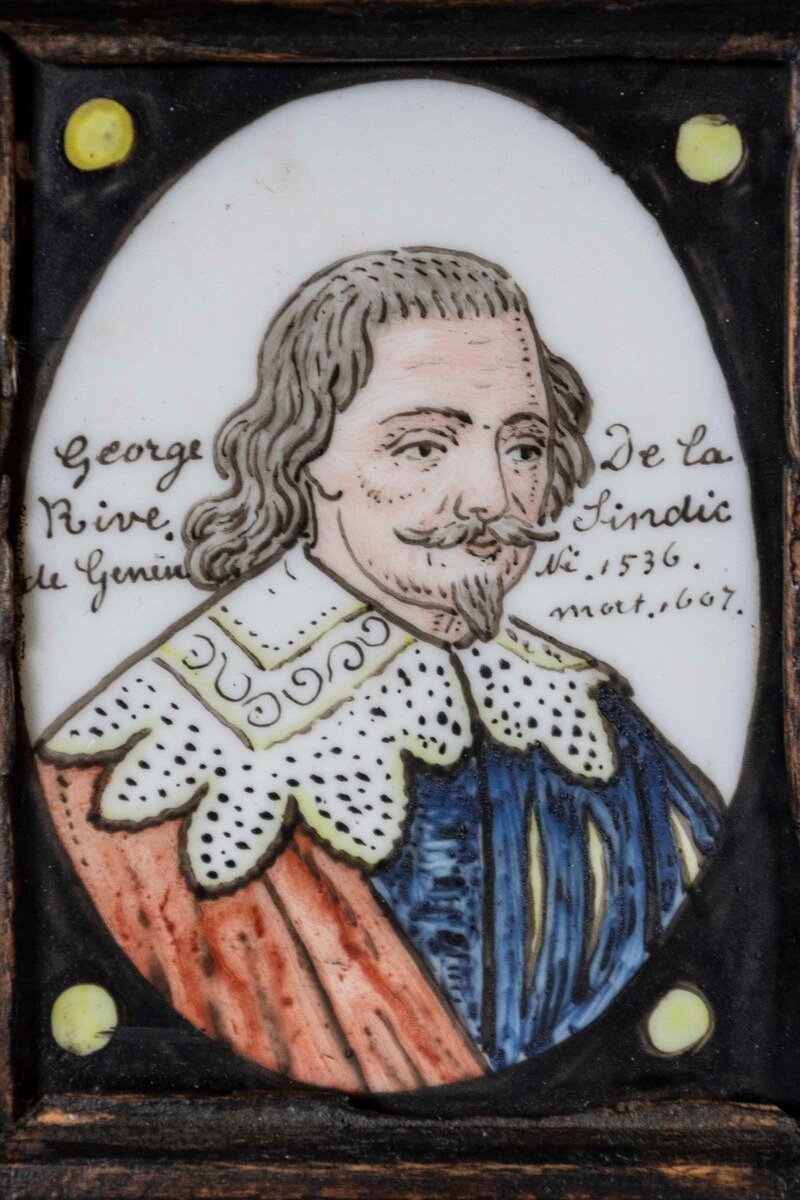 George De la
Rive. Sindic
de Genêv Né. 1536.
mort. 1607.